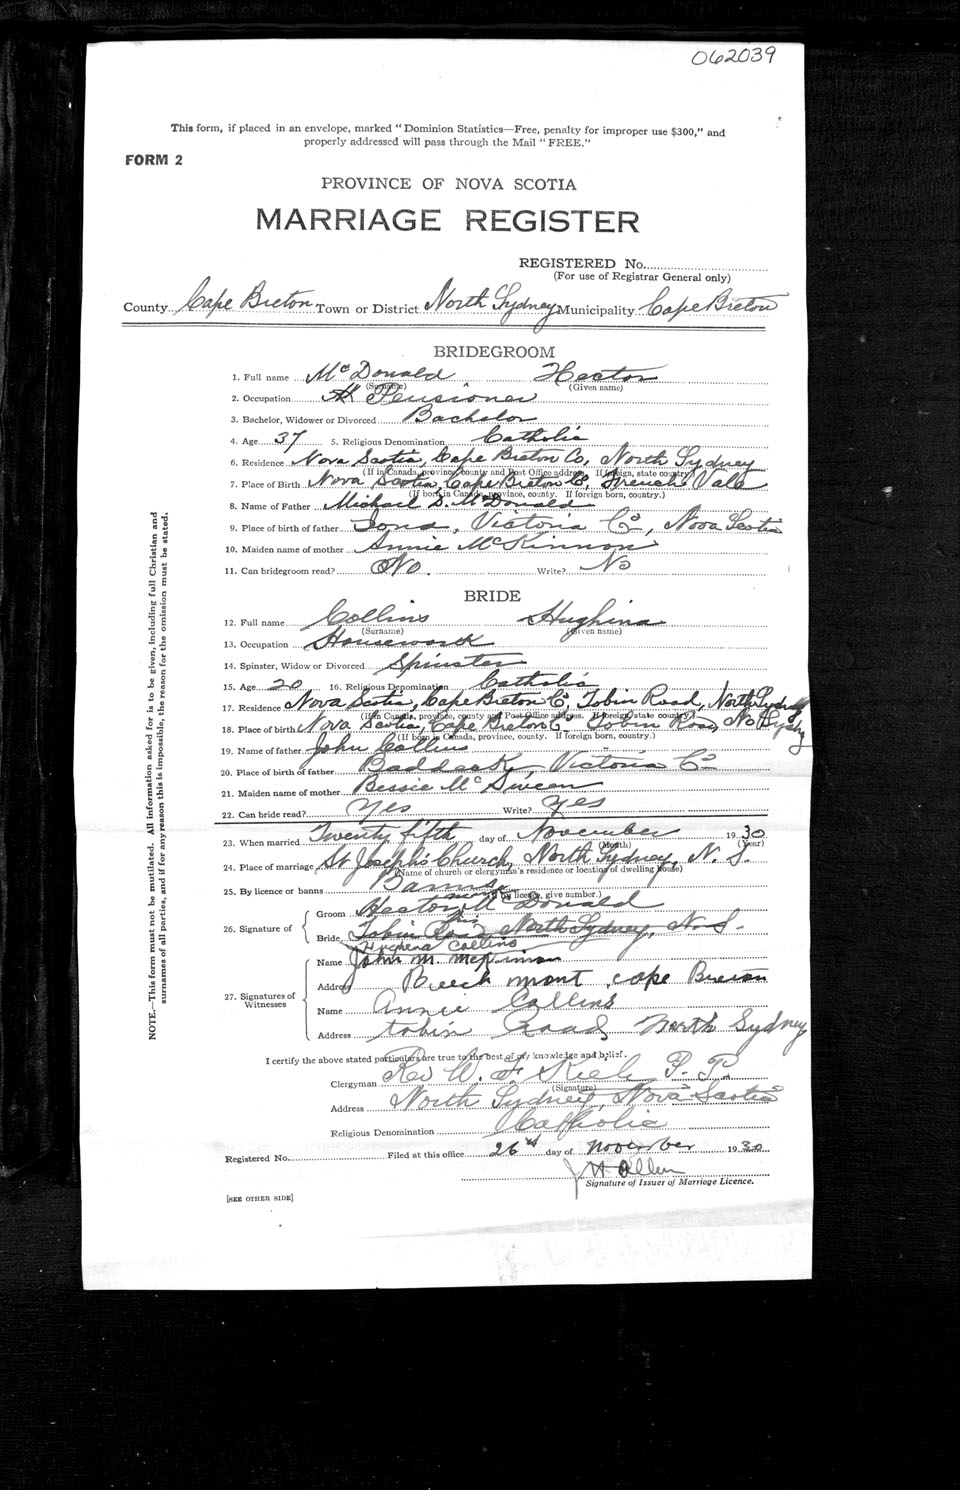 062039
This form, if placed in an envelope, marked "Dominion Statistics—Free, penalty for improper use $300," and
properly addressed will pass through the Mail "FREE."
FORM 2
PROVINCE OF NOVA SCOTIA
MARRIAGE REGISTER
REGISTERED No.
(For use of Registrar General only)
County Cape Breton Town or District North Sydney Municipality Cape Breton
BRIDEGROOM
1. Full name McDonald Hector
(Surname) (Given name)
2. Occupation Pensioner
3. Bachelor, Widower or Divorced Bachelor
4. Age 37 5. Religious Denomination Catholic
6. Residence Nova Scotia, Cape Breton Co, North Sydney
(If in Canada, province, county and Post Office address. If foreign, state country.)
7. Place of Birth Nova Scotia, Cape Breton Co, French Vale
(If born in Canada, province, county. If foreign born, country.)
8. Name of Father Michael S. McDonald
9. Place of birth of father Iona, Victoria Co, Nova Scotia
10. Maiden name of mother Annie McKinnon
11. Can bridegroom read? No. Write? No
BRIDE
12. Full name Collins Hughina
(Surname) (Given name)
13. Occupation Housework
14. Spinster, Widow or Divorced Spinster
15. Age 20 16. Religious Denomination Catholic
17. Residence Nova Scotia, Cape Breton Co, Tobin Road, North Sydney
(If in Canada, province, county and Post Office address. If foreign, state country.)
18. Place of birth Nova Scotia, Cape Breton Co Tobin Road, No Sydney
(If born in Canada, province, county. If foreign born, country.)
19. Name of father John Collins
20. Place of birth of father Baddeck, Victoria Co
21. Maiden name of mother Bessie McSween
22. Can bride read? Yes Write? Yes
23. When married Twenty fifth day of November 1930
(Month) (Year)
24. Place of marriage St Joseph's Church, North Sydney, N. S.
(Name of church or clergyman's residence or location of dwelling house)
25. By licence or banns Banns
(If by licence, give number.)
26. Signature of
Groom Hector McDonald
his
mark
Bride Tobin Road North Sydney, N.S.
Hughena Collins
27. Signatures of Witnesses
Name John M. McKinnon
Address Beechmont Cape Breton
Name Annie Collins
Address Tobin Road North Sydney
I certify the above stated particulars are true to the best of my knowledge and belief.
Clergyman Rev W. F. Kiely P.P.
(Signature)
Address North Sydney, Nova Scotia
Religious Denomination Catholic
Registered No. Filed at this office 26th day of November 1930
J H Allen
Signature of Issuer of Marriage Licence.
[SEE OTHER SIDE]
NOTE.—This form must not be mutilated. All information asked for is to be given, including full Christian and
surnames of all parties, and if for any reason this is impossible, the reason for the omission must be stated.